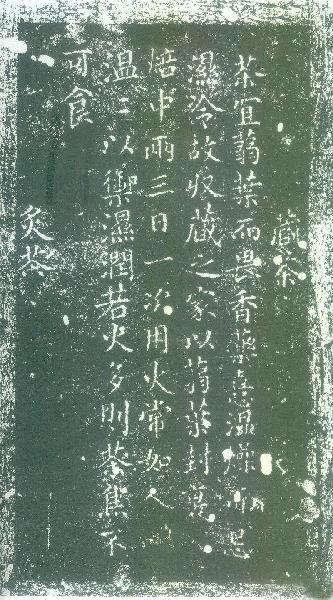 藏茶
茶宜蒻葉而畏香藥喜温燥而忌
濕冷故收藏之家以蒻葉封裹入
焙中兩三日一次用火常如人
温〻以禦濕潤若火多則茶焦不
可食
炙茶